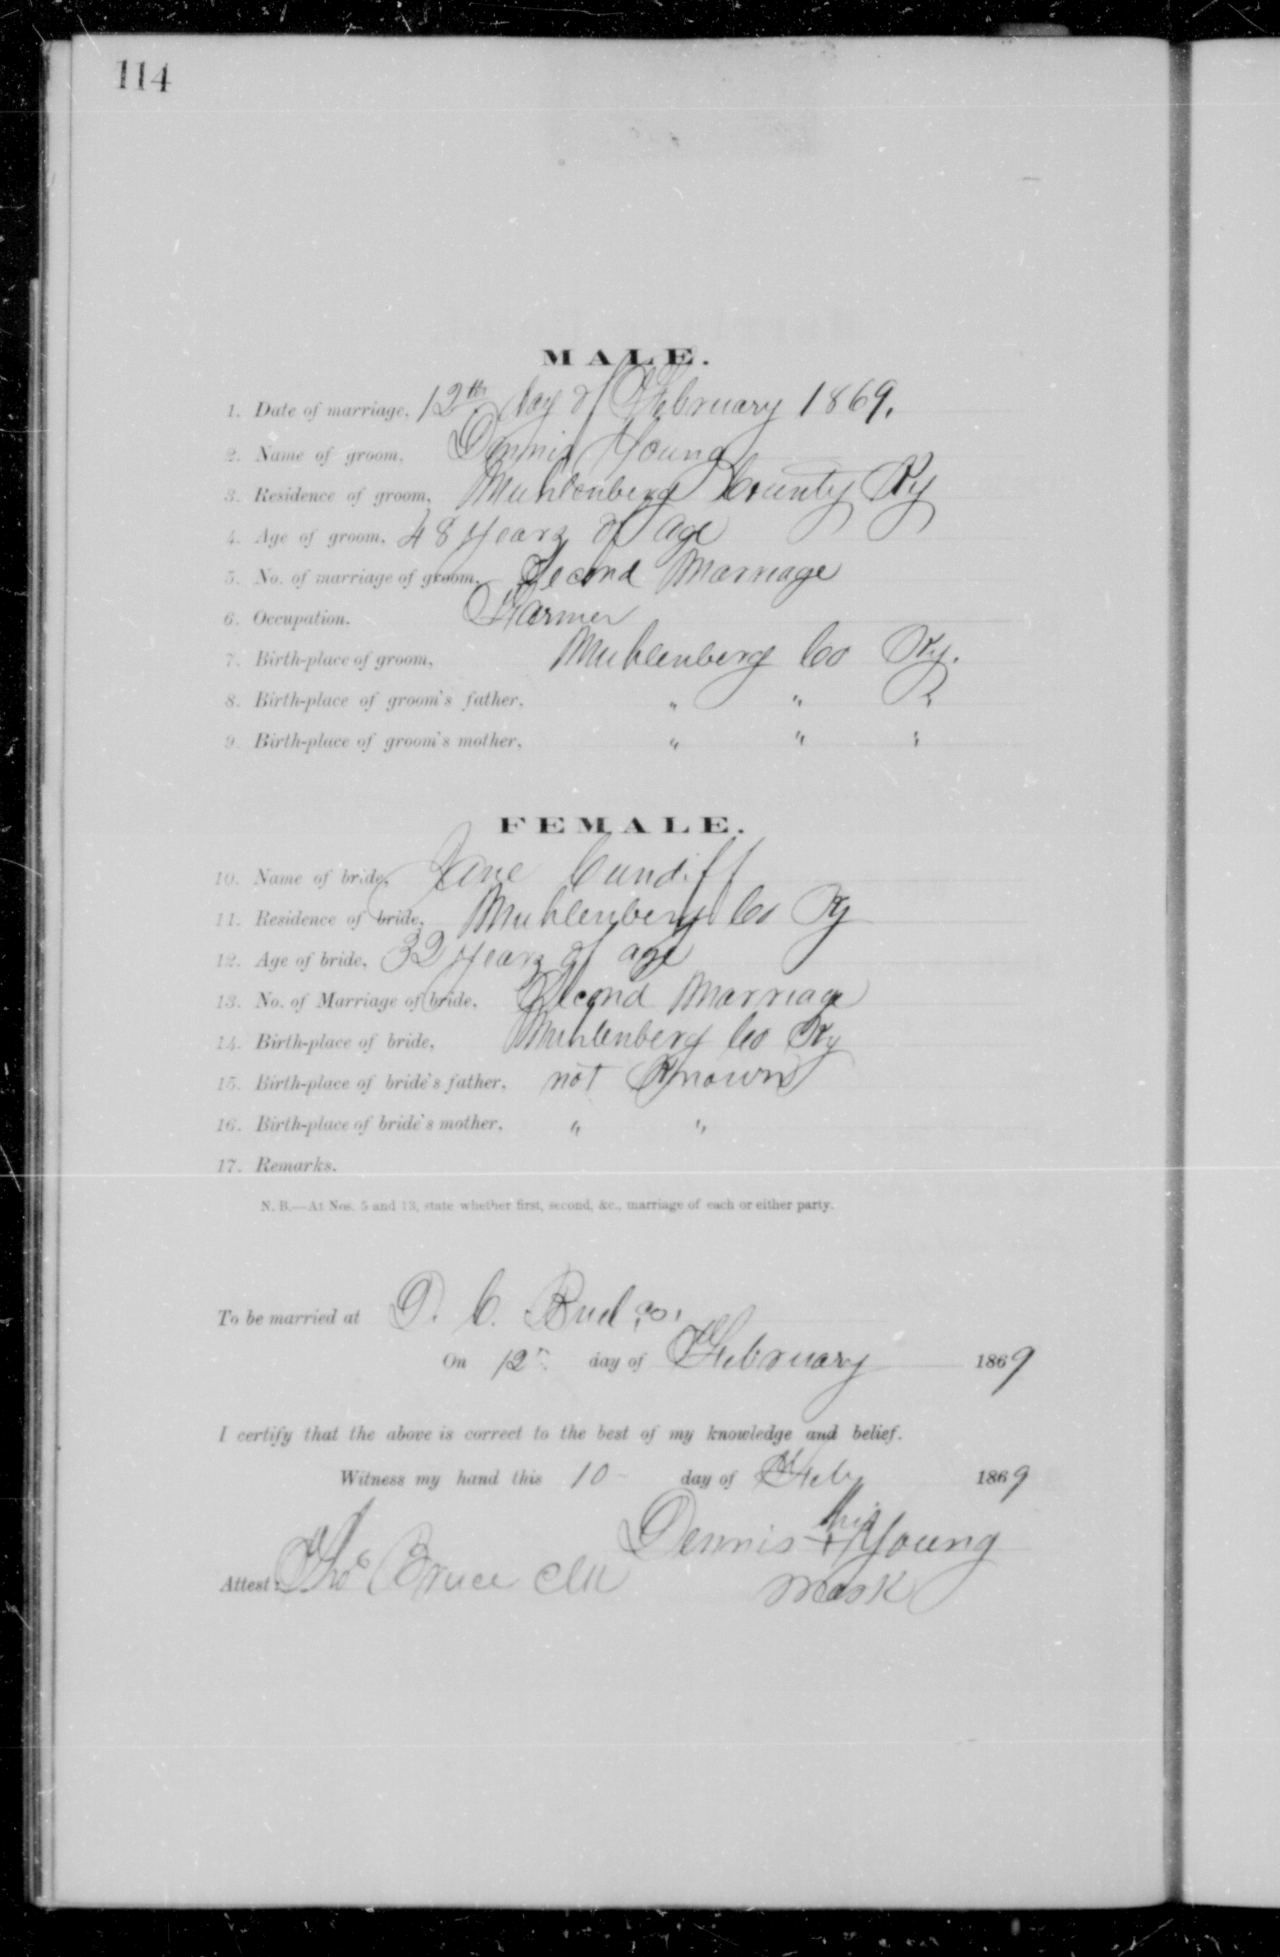 114
MALE.
1. Date of marriage, 12th day of February 1869.
2. Name of groom, Dennis Young
3. Residence of groom, Muhlenberg County Ky
4. Age of groom, 48 years of age
5. No. of marriage of groom, Second Marriage
6. Occupation. Farmer
7. Birth-place of groom, Muhlenberg Co Ky.
8. Birth-place of groom's father, " " "
9. Birth-place of groom's mother, " " "
FEMALE.
10. Name of bride, Jane Cundiff
11. Residence of bride, Muhlenberg Co Ky
12. Age of bride, 32 years of age
13. No. of Marriage of bride, Second Marriage
14. Birth-place of bride, Muhlenberg Co Ky
15. Birth-place of bride's father, not Known
16. Birth-place of bride's mother, " "
17. Remarks.
N. B.—At Nos. 5 and 13, state whether first, second, &c., marriage of each or either party.
To be married at D. C.
On 12 day of February 1869
I certify that the above is correct to the best of my knowledge and belief.
Witness my hand this 10 day of Feby 1869
his
Dennis + Young
mark
Attest: Thos Bruce Clk